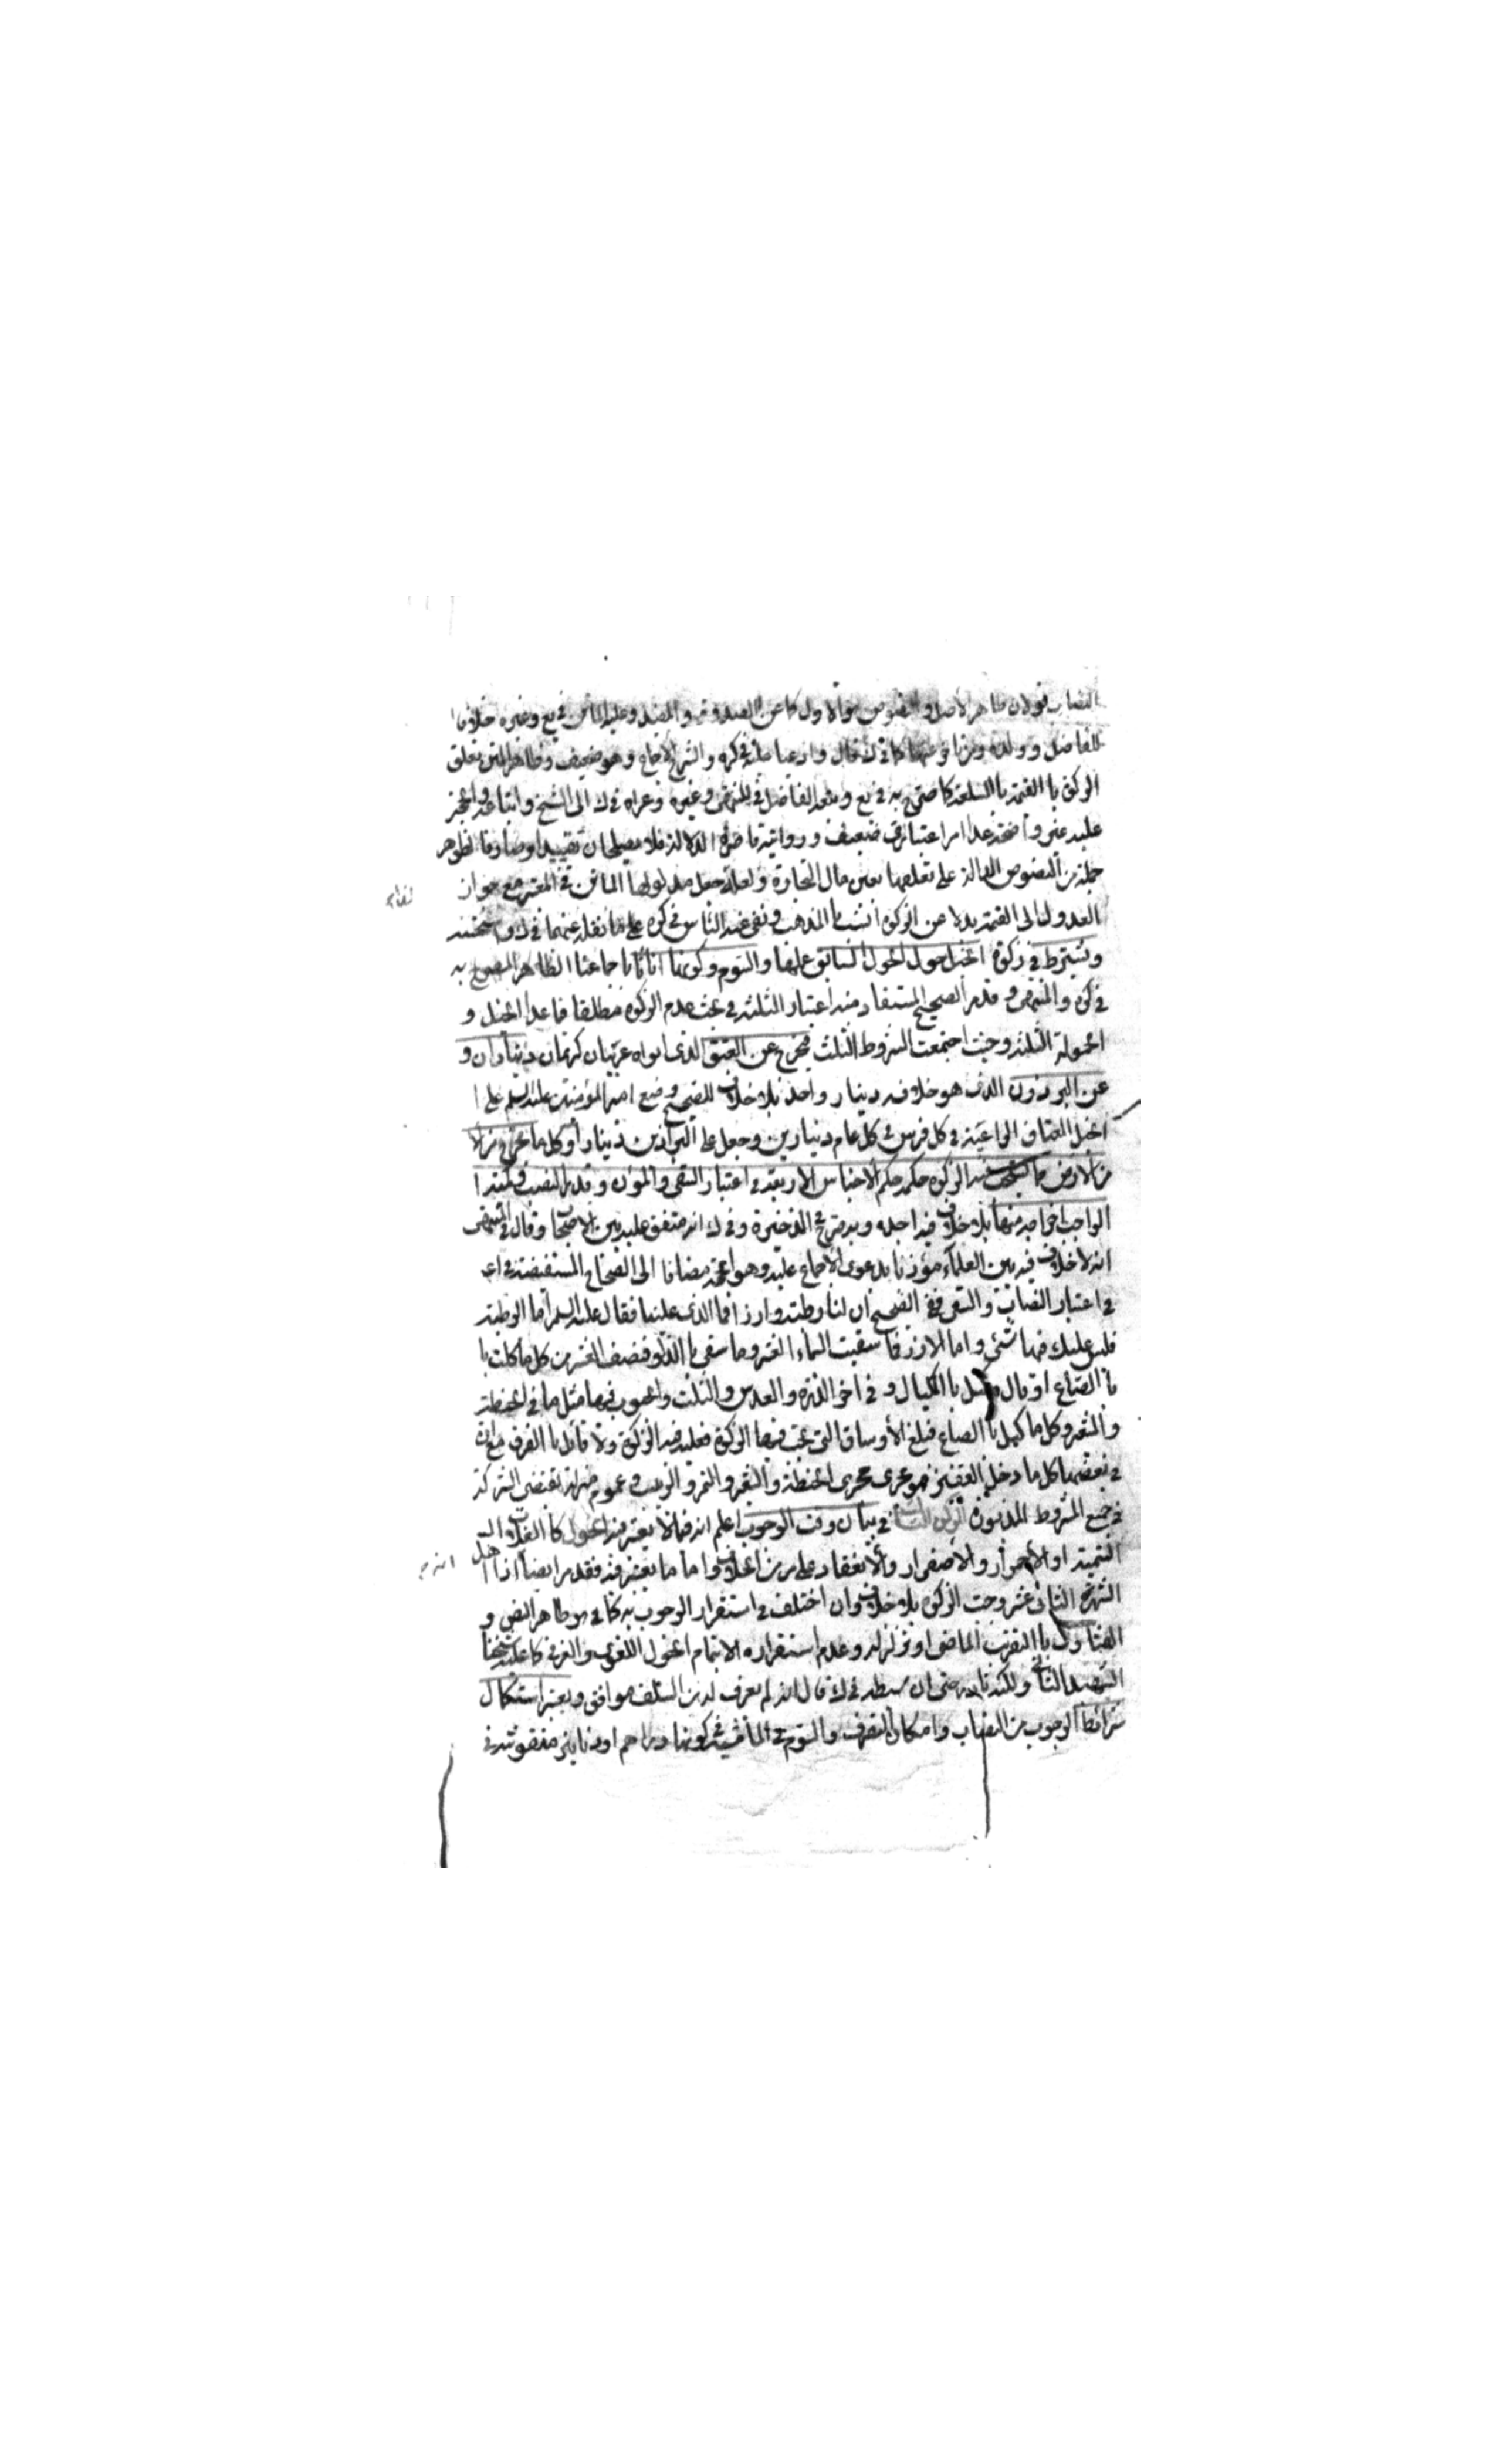 النصاب قولان ظاهر الأصل والنصوص هو الاول كما عن الصدوق والمفيد وعليه الماتن في يع وغيره خلافا
للفاضل وولده وغيرهما كما في ك قال وادعيا عليه في كره والشرح الاجماع وهو ضعيف وظاهر المتن تعلق
الزكوة باالقيمة باالسلعة كما صرح به في يع وبعد الفاضل في المنتهى وغيره وعزاه في ك الى الشيخ واتباعه والحجة
عليه غير واضحة عدا امر اعتباري ضعيف ورواية قاصرة الدلالة فلا يصلحان تقييدا وصارفا لظواهر
جملة من النصوص الدالة على تعلقها بعين مال التجارة ولعله جعل مدلولها الماتن في المعتبر مع جواز
العدول الى القيمة بدلا عن الزكوة انسب باالمذهب ونفى عنه الباس في كره على ما نقله عنهما في ك واستحسنه
ويشترط في زكوة الخيل حول الحول السابق عليها والسوم وكونها اناثا باجماعنا الظاهر المصرح به
في كره والمنتهى وقد مر الصحيح المستفاد منه اعتبار الثلثة في بحث عدم الزكوة مطلقا فيما عدا الخيل و
الحمولة الثلثة وحيث اجتمعت الشروط الثلث فيخرج عن العتيق الذي ابواه عربيان كريمان ديناران و
عن البرذون الذي هو خلافه دينار واحد بلا خلاف للصحيح وضع امير المؤمنين عليه السلم على ا
الخيل العتاق الراعية في كل فرس في كل عام دينارين وجعل على البراذين دينارا وكل ما يخرج من الا
من الارض مما يستحب فيه الزكوة حكمه حكم الاجناس الاربعة في اعتبار السقى والمؤن وقدر النصب وكمية ا
الواجب اخراجه منها بلا خلاف فيه اجده وبه صرح في الذخيرة وفي ك انه متفق عليه بين الاصحاب وقال في المنتهى
انه لا خلاف فيه بين العلماء مؤذنا بدعوى الاجماع عليه وهو الحجة مضافا الى الصحاح المستفيضة في اعـ
في اعتبار النصاب والسقى ففي الصحيح ان لنا رطبة وارزا فما الذي علينا فقال عليه السلم اما الرطبة
فليس عليك فيها شئ واما الارز فما سقت السماء العشر وما سقى باالدلو فنصف العشر من كل ما كلت با
باالصاع او قال وكيل باالمكيال وفي اخر الذرة والعدس والسلت والحبوب فيها مثل ما في الحنطة
والشعير وكل ما كيل باالصاع فبلغ الأوساق التي يجب فيها الزكوة فعليه فيه الزكوة ولا قائل باالفرق مع ان
في بعضها كل ما دخل القفيز فهو يجرى مجرى الحنطة والشعير والتمر والزبيب وعموم المنزلة يقتضى الشركة
في جميع الشروط المذبورة الركن الثالث في بيان وقت الوجوب اعلم انه فيما لا يعتبر فيه الحول كا الغلات
التسمية او الأحمرار والأصفرار والأنعقاد على ما مر من الخلاف واما ما يعتبر فيه فقد مر ايضا اذا اهل
الشهر الثانى عشر وجبت الزكوة بلا خلاف وان اختلف في استقرار الوجوب به كما هو ظاهر النص و
الفتاوى باالتقريب الماضى او تزلزله وعدم استقراره الا بتمام الحول اللغوى والعرفى كما عليه شيخنا
الشهيد الثاني ولكنه نادر حتى ان سبطه في ك قال انه لم يعرف له من السلف موافق ويعتبر استكمال
شرائط الوجوب من النصاب وامكان التصرف والسوم في الماشية وكونها دراهم او دنانير منقوشة في